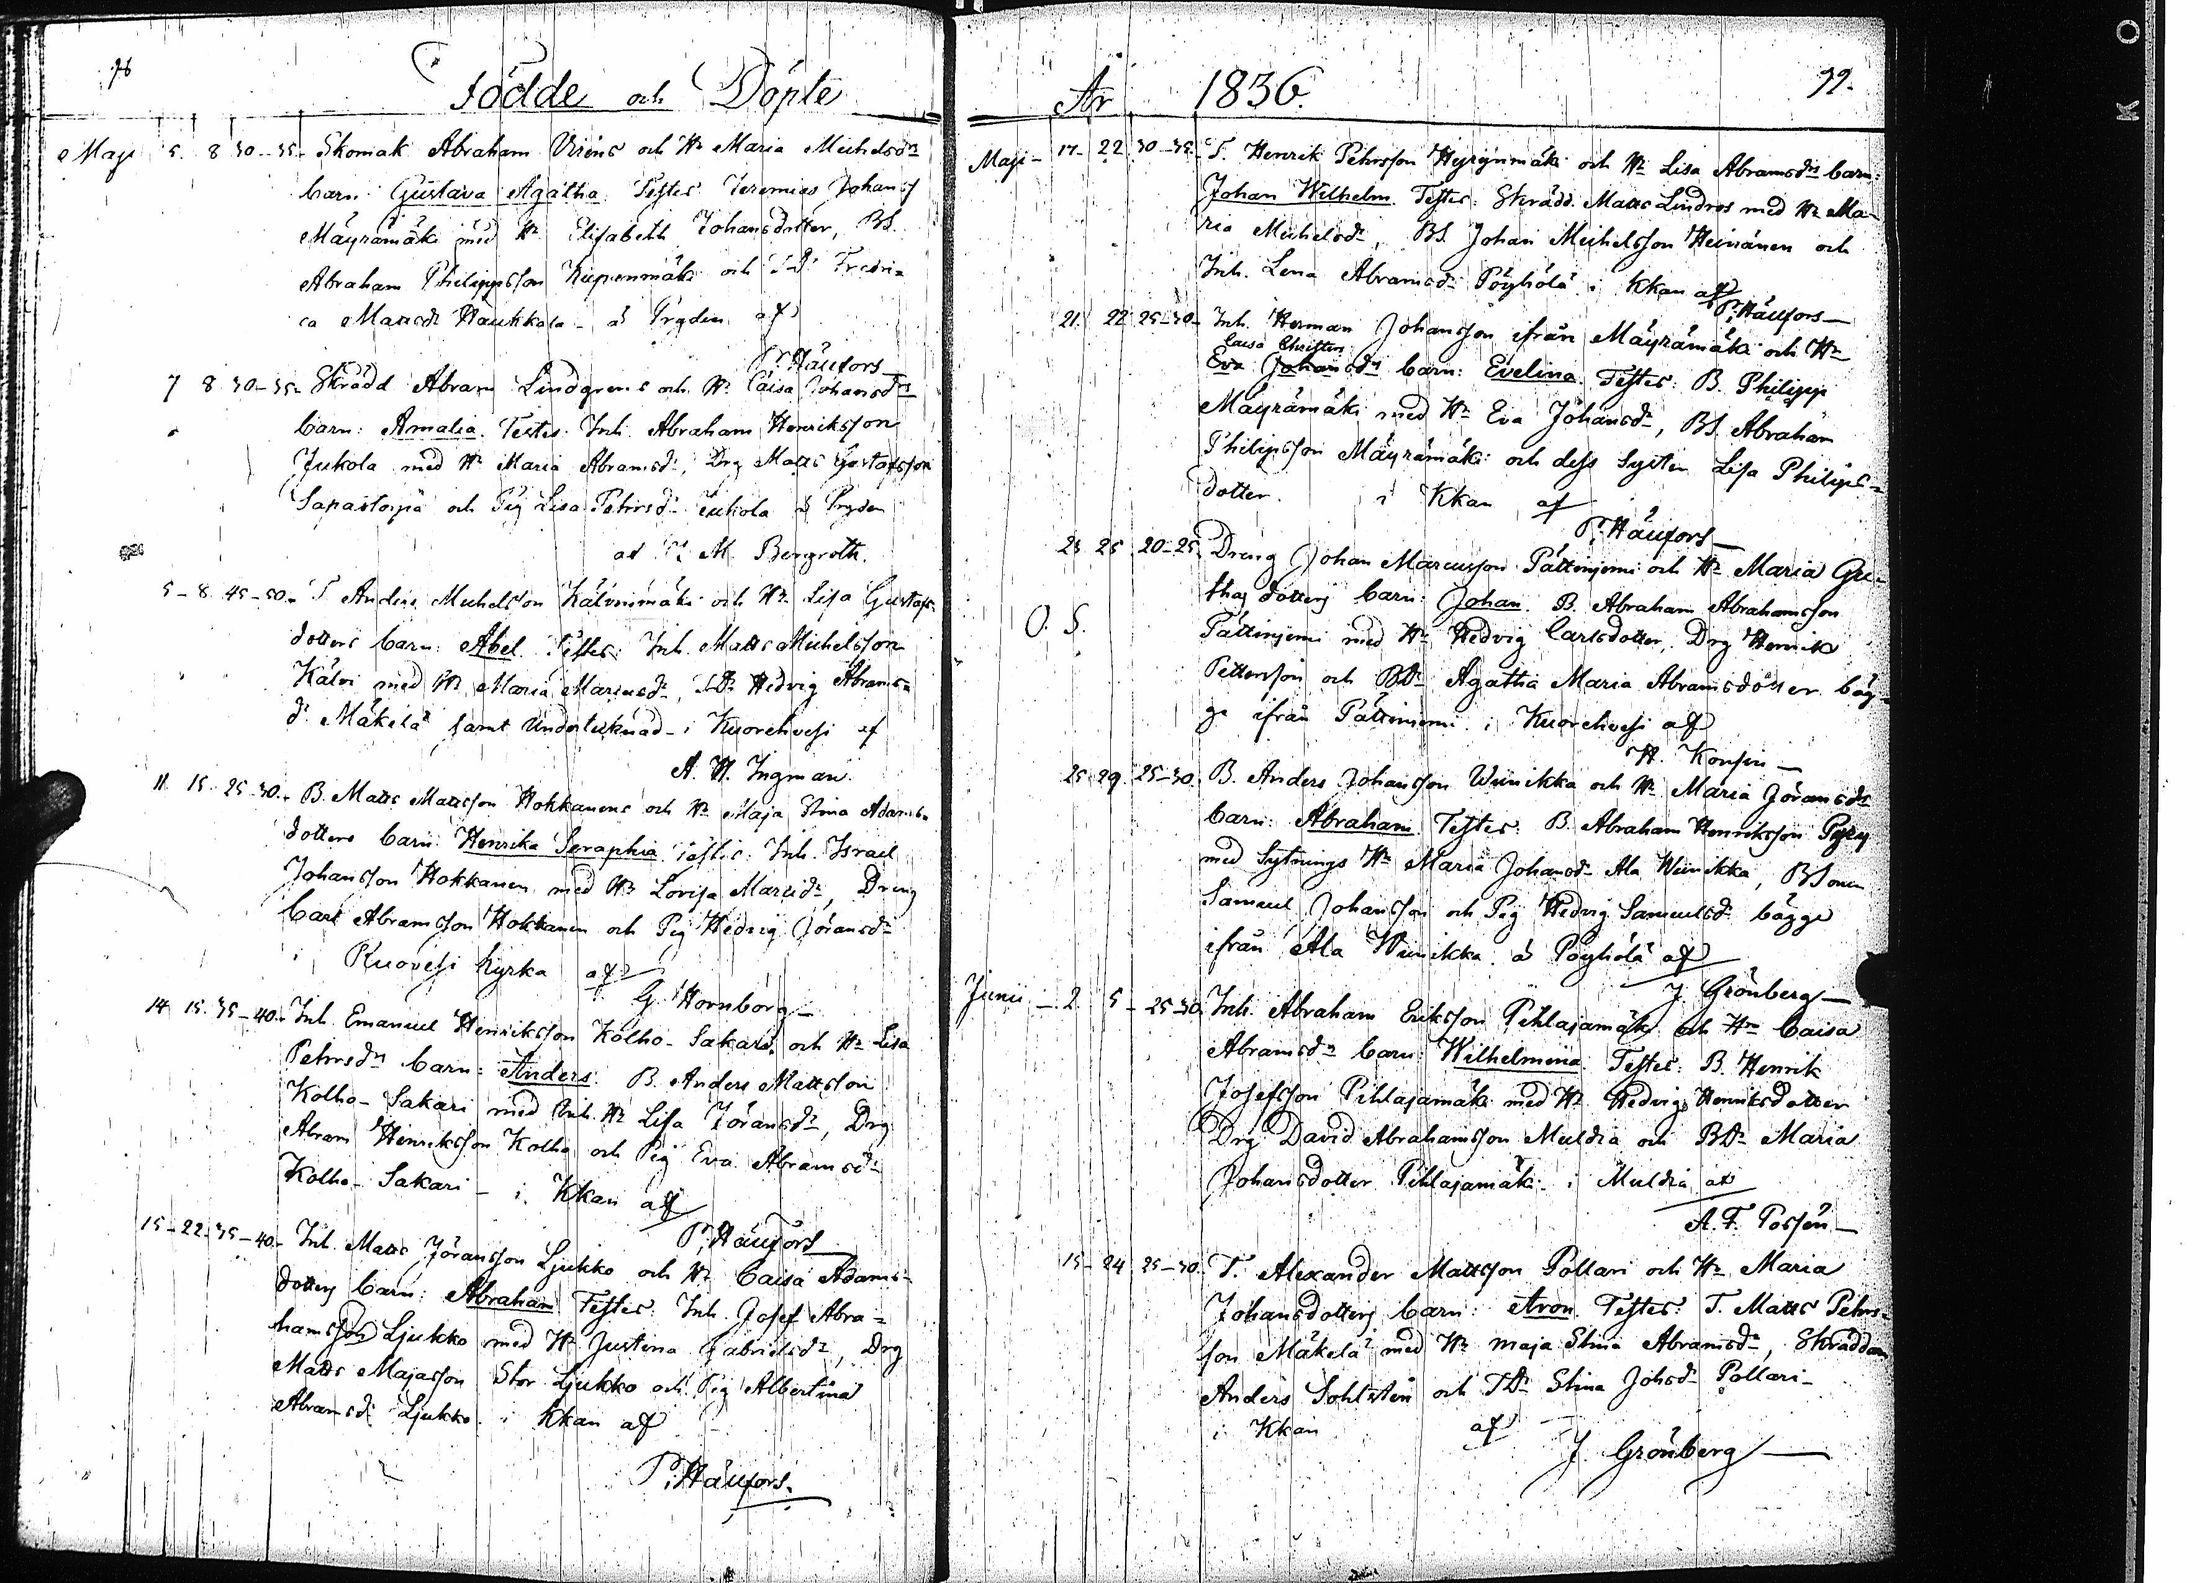 78
Födde och Döpte
Maji 5. 8 30-35. Skomak Abraham Viens och Hu Maria Michelsdrs
barn: Gustava Agatha. Testes Jeremias Johanss
Mäyrämäki med Hu Elisabeth Johansdotter, BS.
Abraham Philippsson Kiepenmäki och TDr Fredri=
ca Mattsdr Haukkala - å Pryden af
P. Häufors
7 8 30-35- Skrädd Abram Lindgrens och Hu Caisa Johansdrs
barn: Amalia. Testes. Inh. Abraham Henriksson
Jukola med Hu Maria Abramsdr, Drg Matts Gustafsson
Sapastoipä och Pig Lisa Pehrsdr Jukola å Pryden
af M. Bergroth.
5-8 45-50. T Anders Michelsson Kälvinmäki och Hu Lisa Gustafs
dotters barn: Abel. Testes: Inh. Matts Michelsson
Kälvi med Hu Maria Mariusdr, TDr Hedvig Abrams=
dr Mäkelä samt Undertecknad - i Kuorehvesi af
A. H. Ingman.
11. 15. 25-30. B. Matts Mattsson Hokkanens och Hu Maja Stina Adams=
dotters barn: Henrika Seraphia. Testes: Inh. Israel
Johansson Hokkanen med Hu Lovisa Marcidr, Dreng
Carl Abramsson Hokkanen och Pig Hedvig Jöransdr
i Ruovesi kyrka af
G. Hornborg
14 15. 35-40. Inh. Emanuel Henriksson Kolho-Sakari och Hu Lisa
Pehrsdrs barn: Anders. B. Anders Mattsson
Kolho-Sakari med Inh. Hu Lisa Jöransdr, Drg
Abram Henriksson Kolho och Pig Eva Abramsdr
Kolho-Sakari - i Kkan af
P. Häufors
15-22. 35-40. Inh. Matts Jöransson Ljukko och Hu Caisa Adams-
dotters barn: Abraham Testes: Inh. Josef Abra=
hamsson Ljukko med Hu Justina Gabrielsdr, Drg
Matts Majasson Stor Ljukko och Pig Albertina
Abramsdr Ljukko. i Kkan af
P. Häufors.
År 1836. 79.
Maji - 17- 22 30-35. T. Henrik Pehrsson Hyrynmäki och Hu Lisa Abramsdrs barn:
Johan Wilhelm. Testes: Skrädd. Matts Lindros med Hu Ma-
ria Michelsdr, BS. Johan Michelsson Heinänen och
Inh. Lena Abramsdr Pöyhölä i Kkan af
P. Häufors
21. 22 25-30- Inh. Herman Johansson ifrån Mäyrämäki och Hu
Caisa Christers
Eva Johansdrs barn: Evelina. Testes: B. Philipp
Mäyrämäki med Hu Eva Johansdr, BS. Abraham
Philipsson Mäyrämäki och dess syster Lisa Philips=
dotter. i Kkan af
P. Häufors
23 25 20-25. Dreng Johan Marcusson Pättiniemi och Hu Maria Gre-
thas dotters barn: Johan. B. Abraham Abrahamsson
O. S.
Pättiniemi med Hu Hedvig Carlsdotter, Drg Henrik
Pettersson och BDr Agatha Maria Abramsdotter bäg-
ge ifrån Pättiniemi i Kuorehvesi af
H. Konsin
25 29. 25-30. B. Anders Johansson Wiinikka och Hu Maria Jöransdrs
barn: Abraham. Testes: B. Abraham Henriksson Pyry
med Sytnings Hu Maria Johansdr Ala Wiinikka, BSonen
Samuel Johansson och Pig Hedvig Samuelsdr bägge
ifrån Ala Wiinikka. å Pöyhölä af
J. Grönberg
Junii - 2 5 - 25-30. Inh. Abraham Eriksson Pihlajamäki och Hu Caisa
Abramsdrs barn: Wilhelmina. Testes: B. Henrik
Josefsson Pihlajamäki med Hu Hedvig Henriksdotter
Drg David Abrahamsson Muldia och BDr Maria
Johansdotter Pihlajamäki. i Muldia af
A. F. Possén
15-24 25-30. T. Alexander Mattsson Pollari och Hu Maria
Johansdotters barn: Aron Testes: T. Matts Pehrs-
son Mäkelä med Hu Maja Stina Abramsdr, Skräddaren
Anders Sohlstén och TDr Stina Johsdr Pollari-
i Kkan af
J. Grönberg
K O